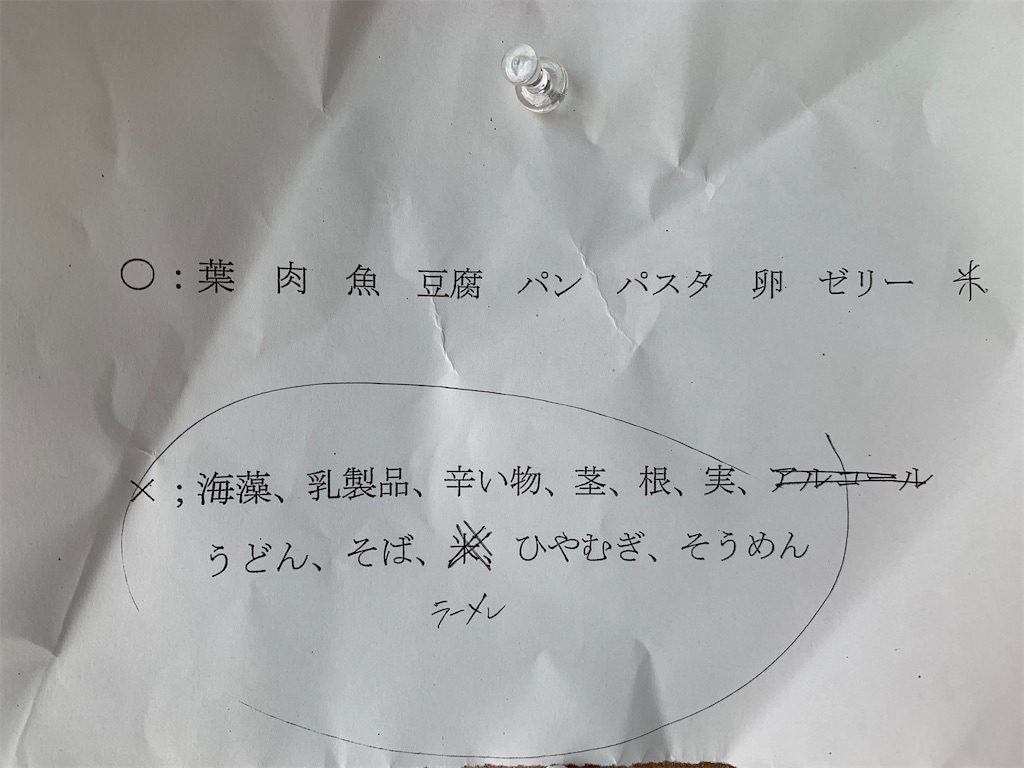 ○：葉 肉 魚 豆腐 パン パスタ 卵 ゼリー 米
×；海藻、乳製品、辛い物、茎、根、実、アルコール
うどん、そば、米、ひやむぎ、そうめん
ラーメン